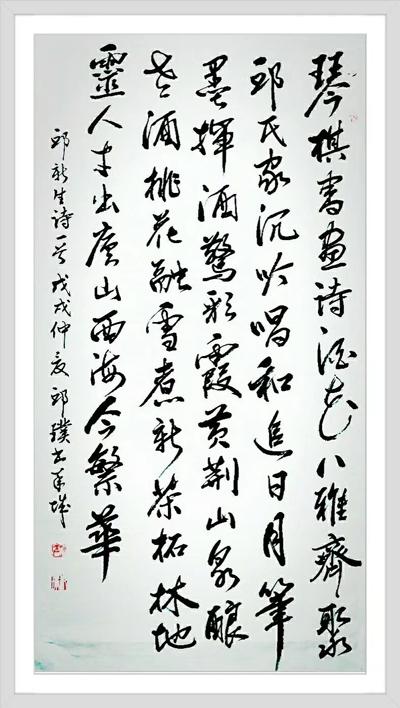 琴棋書畫詩酒花八雅齊聚
邱氏家沉吟唱和追日月筆
墨揮洒驚彩霞黃荊山泉釀
老酒桃花融雪煮新茶柘林地
靈人才出廬山西海今繁華
邱新生詩一首戊戌仲夏邱璞书羊城